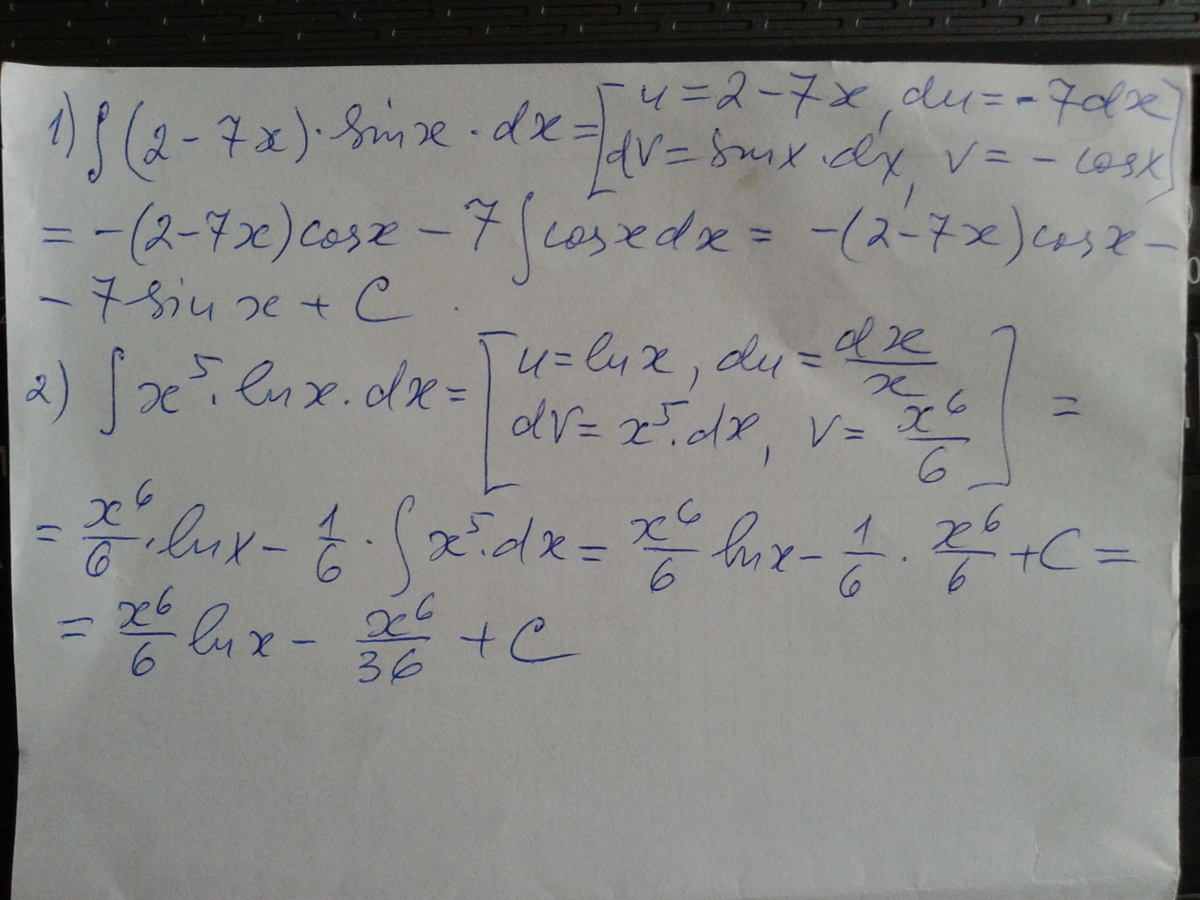 1) ∫(2-7x)·sinx·dx=[u=2-7x, du=-7dx
dV=sinx·dx, V=-cosx]
=-(2-7x)cosx-7∫cosxdx=-(2-7x)cosx-
-7sinx+C
2) ∫x⁵·lnx·dx=[u=lnx, du=dx/x
dV=x⁵·dx, V=x⁶/6]=
=x⁶/6·lnx-1/6·∫x⁵·dx=x⁶/6 lnx-1/6·x⁶/6+C=
=x⁶/6 lnx-x⁶/36+C